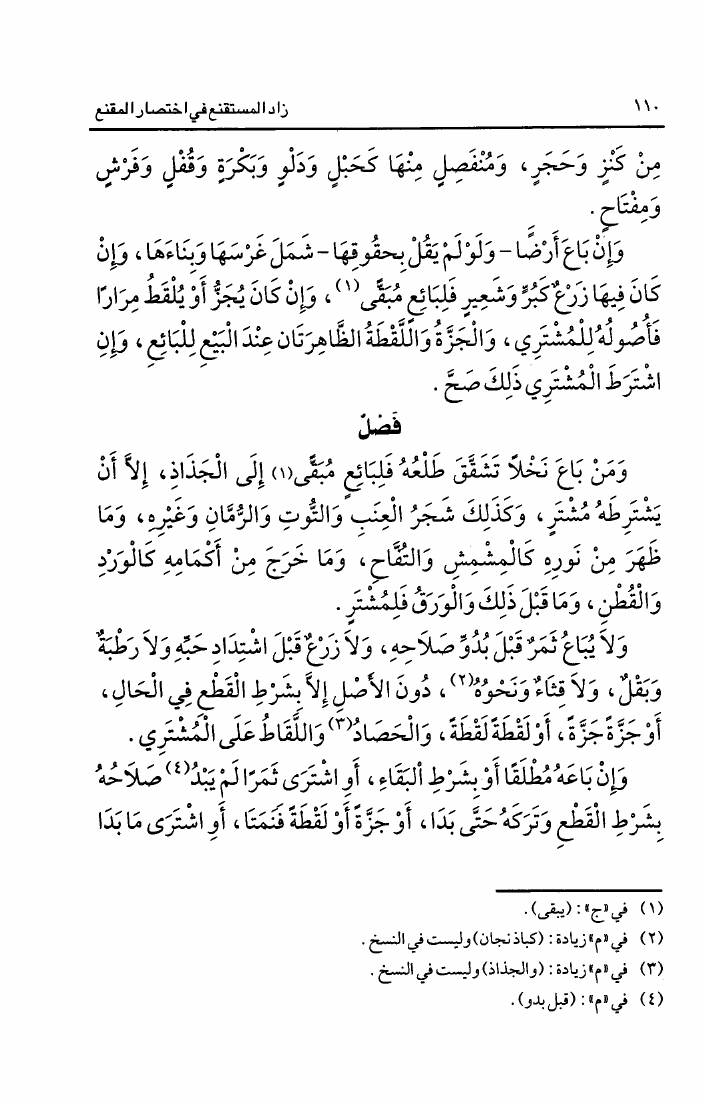 ١١٠ زاد المستقنع في اختصار المقنع
مِنْ كَنْزٍ وَحَجَرٍ، وَمُنْفَصِلٍ مِنْهَا كَحَبْلٍ وَدَلْوٍ وَبَكْرَةٍ وَقُفْلٍ وَفَرْشٍ
وَمِفْتَاحٍ.
وَإِنْ بَاعَ أَرْضًا - وَلَوْ لَمْ يَقُلْ بِحقُوقِهَا - شَمَلَ غَرْسَهَا وَبِنَاءَهَا، وَإِنْ
كَانَ فِيهَا زَرْعٌ كَبُرٍّ وَشَعِيرٍ فَلِبَائِعٍ مُبَقًّى(١)، وَإِنْ كَانَ يُجَزُّ أَوْ يُلْقَطُ مِرَارًا
فَأُصُولُهُ لِلْمُشْتَرِي، وَالْجَزَّةُ وَاللَّقْطَةُ الظَّاهِرَتَانِ عِنْدَ الْبَيْعِ لِلْبَائِعِ، وَإِنِ
اشْتَرَطَ الْمُشْتَرِي ذَلِكَ صَحَّ.
فَصْلٌ
وَمَنْ بَاعَ نَخْلاً تَشَقَّقَ طَلْعُهُ فَلِبَائِعٍ مُبَقًّى(١) إِلَى الْجَذَاذِ، إِلاَّ أَنْ
يَشْتَرِطَهُ مُشْتَرٍ، وَكَذَلِكَ شَجَرُ الْعِنَبِ وَالتُّوتِ وَالرُّمَّانِ وَغَيْرِهِ، وَمَا
ظَهَرَ مِنْ نَورِهِ كَالْمِشْمِشِ وَالتُّفَّاحِ، وَمَا خَرَجَ مِنْ أَكْمَامِهِ كَالْوَرْدِ
وَالْقُطْنِ، وَمَا قَبْلَ ذَلِكَ وَالْوَرَقُ فَلِمُشْتَرٍ.
وَلاَ يُبَاعُ ثَمَرٌ قَبْلَ بُدُوِّ صَلاَحِهِ، وَلاَ زَرْعٌ قَبْلَ اشْتِدَادِ حَبِّهِ وَلاَ رَطْبَةٌ
وَبَقْلٌ، وَلاَ قِثَاءٌ وَنَحْوُهُ(٢)، دُونَ الأَصْلِ إِلاَّ بِشَرْطِ الْقَطْعِ فِي الْحَالِ،
أَوْ جَزَّةً جَزَّةً، أَوْ لَقْطَةً لَقْطَةً، وَالْحَصَادُ(٣) وَاللَّقَاطُ عَلَى الْمُشْتَرِي.
وَإِنْ بَاعَهُ مُطْلَقًا أَوْ بِشَرْطِ الْبَقَاءِ، أَوِ اشْتَرَى ثَمَرًا لَمْ يَبْدُ(٤) صَلاَحُهُ
بِشَرْطِ الْقَطْعِ وَتَرَكَهُ حَتَّى بَدَا، أَوْ جَزَّةً أَوْ لَقْطَةً فَنَمَتَا، أَوِ اشْتَرَى مَا بَدَا
(١) في «ج»: (يبقى).
(٢) في «م» زيادة: (كباذنجان) وليست في النسخ.
(٣) في «م» زيادة: (والجذاذ) وليست في النسخ.
(٤) في «م»: (قبل بدو).